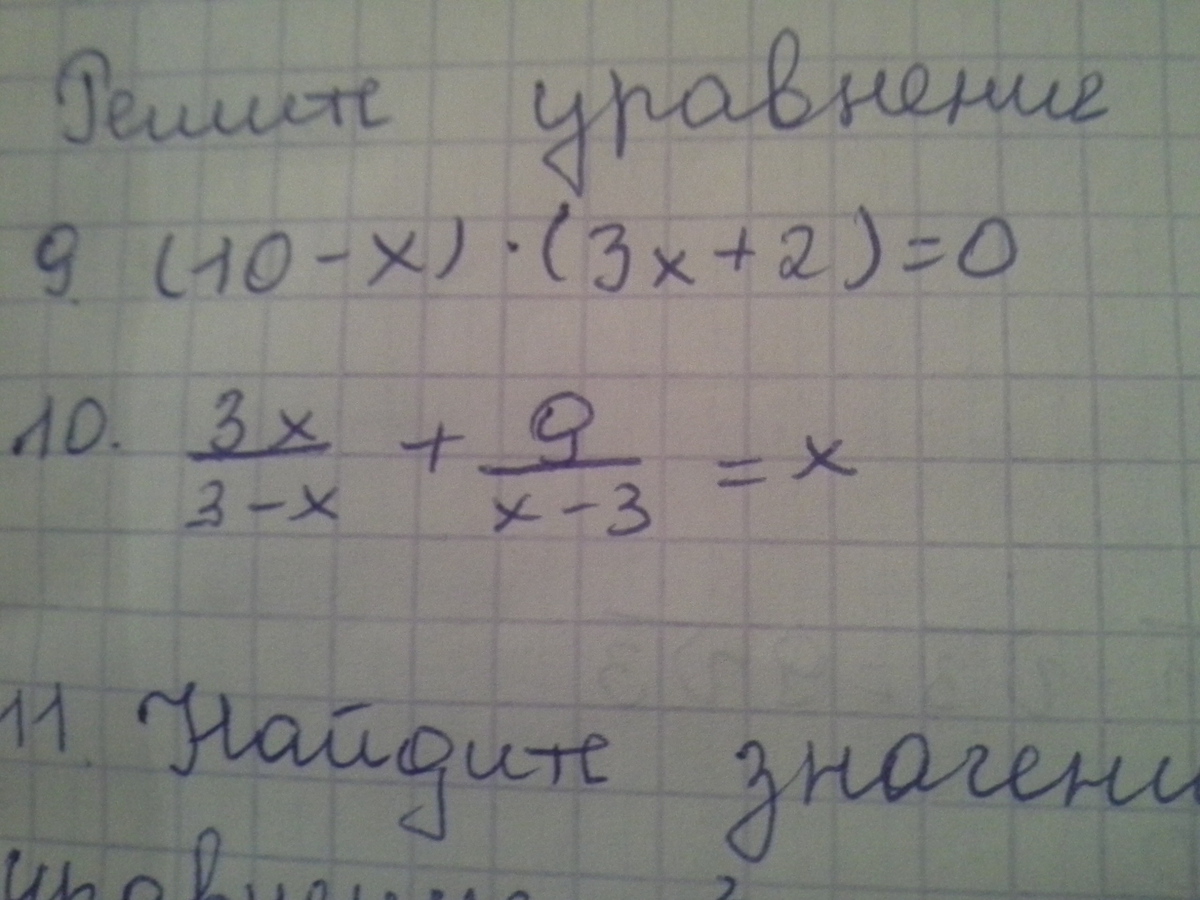 Решите уравнение
9 (10-x)·(3x+2)=0
10. \frac{3x}{3-x} + \frac{9}{x-3} = x
11. Найдите значени